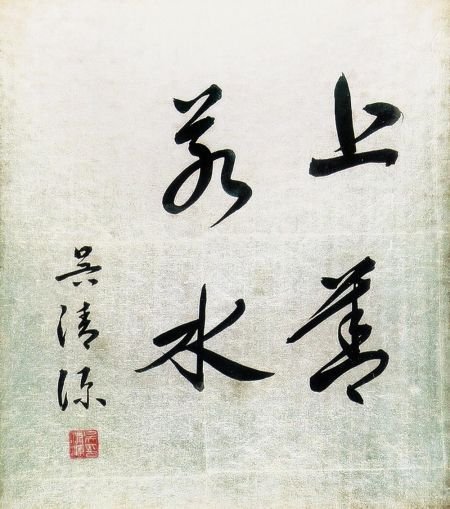 上善
若水
吳清源